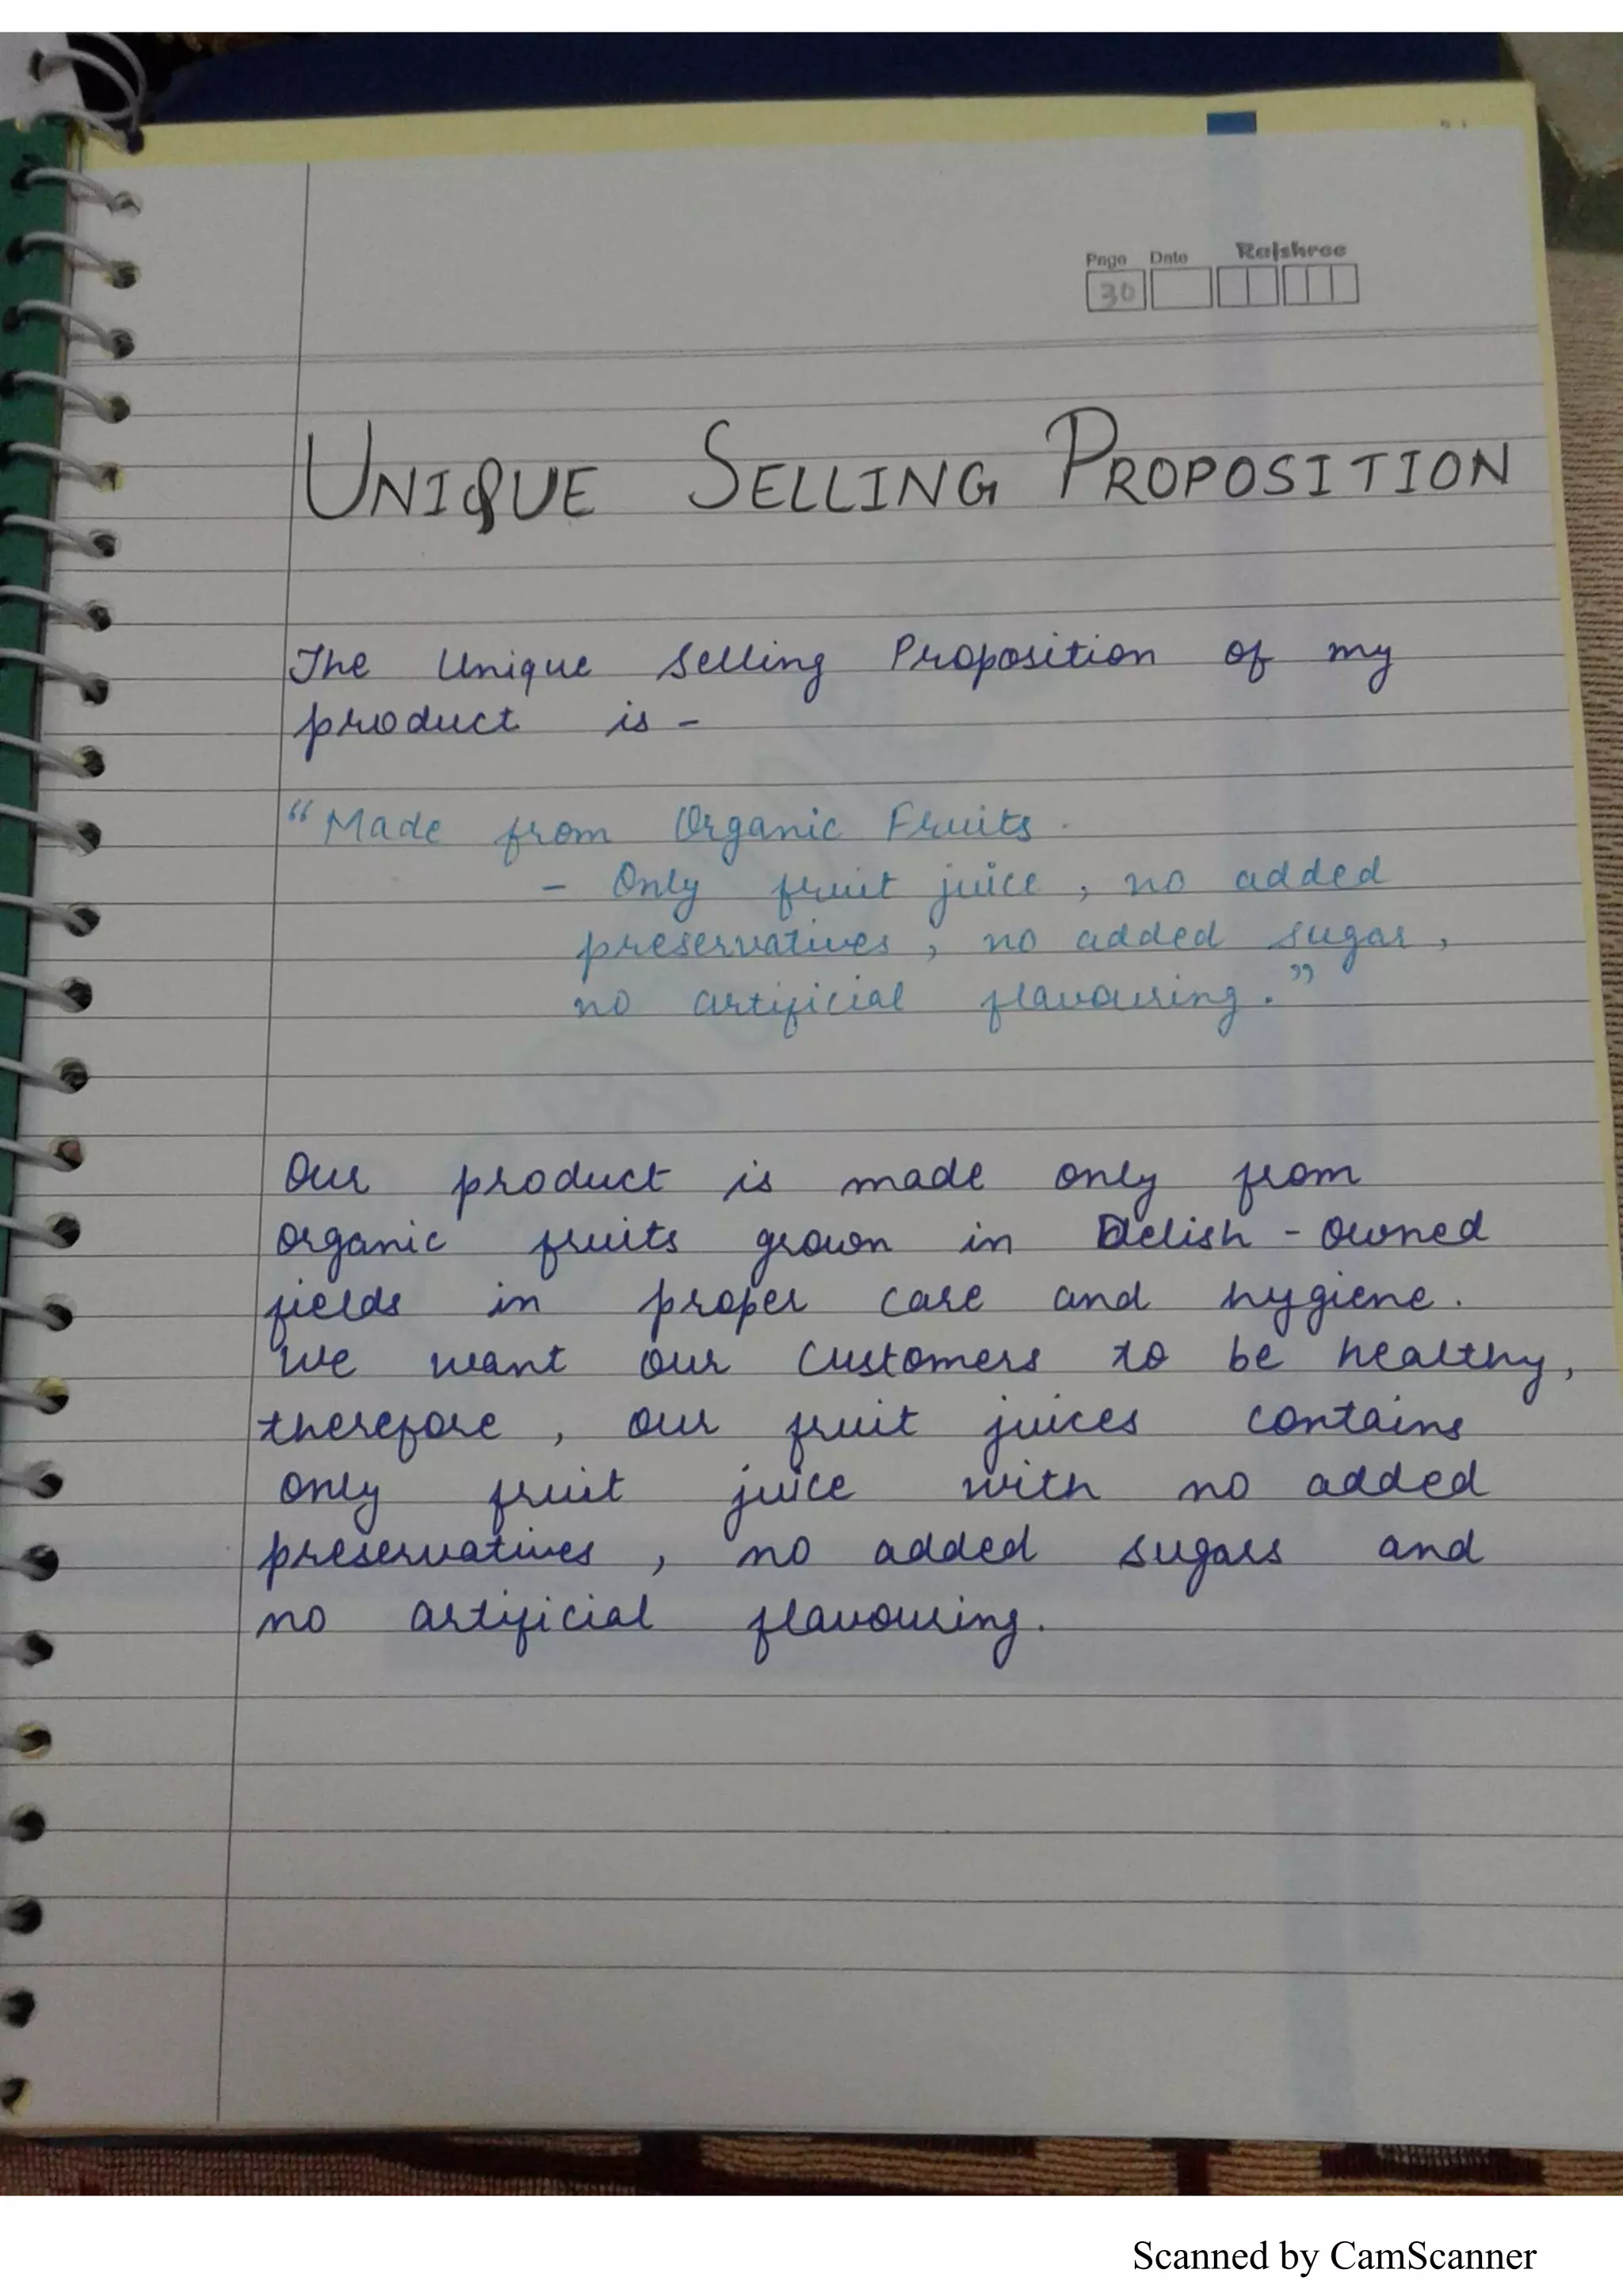 Page Date Rajshree
30
UNIQUE SELLING PROPOSITION
The Unique Selling Proposition of my
product is -
"Made from Organic Fruits.
- Only fruit juice, no added
preservatives, no added sugar,
no artificial flavouring."
Our product is made only from
organic fruits grown in Delish - owned
fields in proper care and hygiene.
We want our customers to be healthy,
therefore, our fruit juices contains
only fruit juice with no added
preservatives, no added sugars and
no artificial flavouring.
Scanned by CamScanner